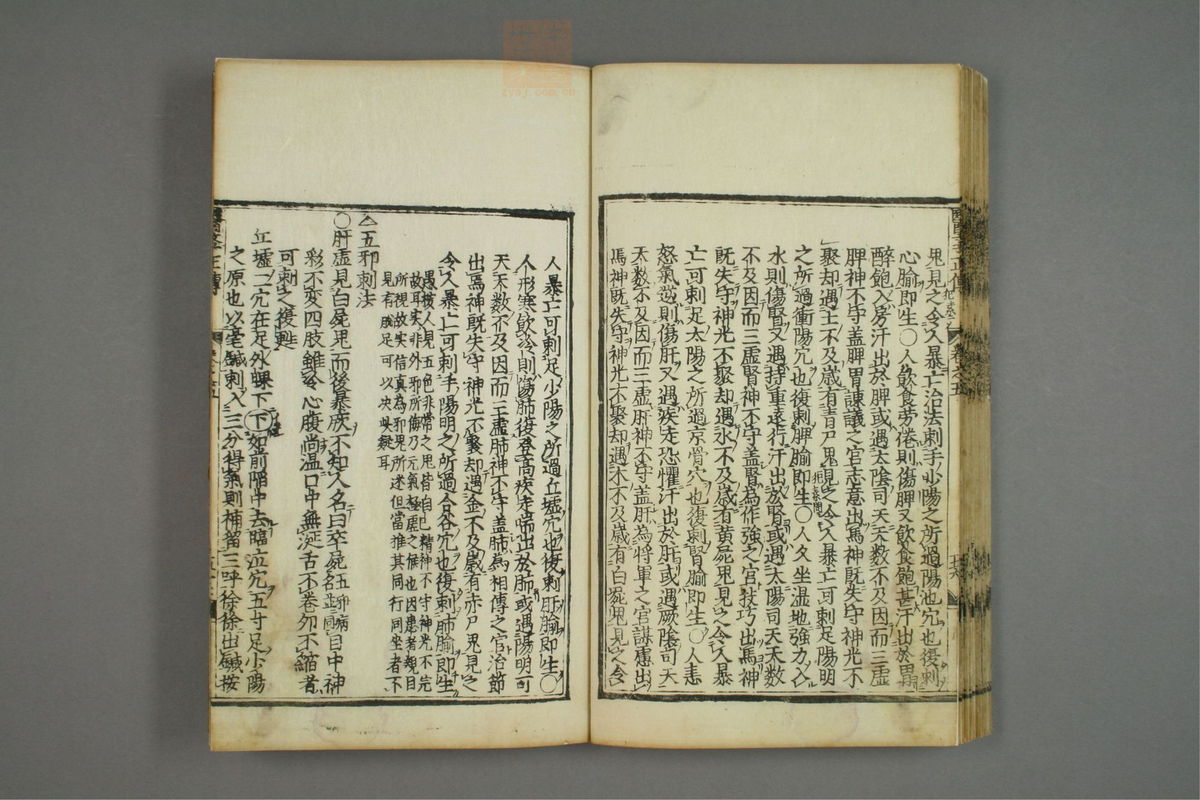 鬼見之令人暴亡治法刺手少陽之所過陽也穴也復刺
心腧即生〇人飲食勞倦則傷脾又飲食飽甚汗出於胃
醉飽入房汗出於脾或遇太陰司天天數不及因而三虛
脾神不守蓋脾胃諫議之官志意出焉神既失守神光不
聚却遇土不及歲有青尸鬼見之令人暴亡可刺足陽明
之所過衝陽穴也復刺脾腧即生〇人久坐湿地強力入
水則傷腎又遇持重遠行汗出於腎或遇太陽司天天數
不及因而三虛腎神不守蓋腎為作強之官技巧出焉神
既失守神光不聚却遇水不及歲有黃屍鬼見之令人暴
亡可刺足太陽之所過京骨穴也復刺腎腧即生〇人恚
怒氣逆則傷肝又遇疾走恐懼汗出於肝或遇厥陰司天
天數不及因而三虛肝神不守蓋肝為將軍之官謀慮出
焉神既失守神光不聚却遇木不及歲有白屍鬼見之令
人暴亡可刺足少陽之所過丘墟穴也復刺肝腧即生〇
人形寒飲冷則傷肺復登高疾走喘出於肺或遇陽明司
天天數不及因而三虛肺神不守蓋肺為相傅之官治節
出焉神既失守神光不聚却遇金不及歲有赤尸鬼見之
令人暴亡可刺手陽明之所過合谷穴也復刺肺腧即生
愚按人見五色非常之鬼皆自己精神不守神光不完
故耳實非外邪所侮乃元氣極虛之候也因患者親目
所視故實信真為邪鬼所迷但當推其同行同坐者不
見有無足可以决嫌疑耳
△五邪刺法
〇肝虛見白屍鬼而後暴厥不知人名曰卒屍五邪病名並同目中神
彩不變四肢雖冷心腹尚温口中無涎舌不卷卵不縮者
可刺之復甦
丘墟二穴在足外踝下如前陷中去臨泣穴五寸足少陽
之原也以毫鍼刺入三分得氣則補留三呼徐徐出鍼按